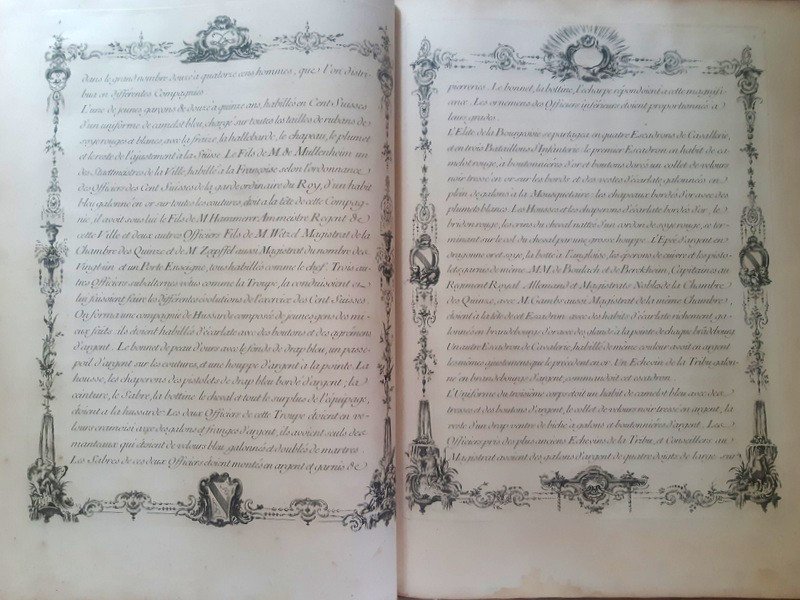 dans le grand nombre douze a quatorze cens hommes, que l'on distri-
bua en differentes Compagnies
L'une de jeunes garçons de douze a quinze ans, habillés en Cent Suisses
d'un uniforme de camelot bleu, chargé sur toutes les tailles de rubans de
soye rouges et blancs, avec la fraise, la hallebarde, le chapeau, le plumet
et le reste de l'ajustement a la Suisse. Le Fils de M. de Mullenheim un
des Stattmaitres de la Ville, habillé a la Françoise selon l'ordonnance
des Officiers des Cent Suisses de la garde ordinaire du Roy, d'un habit
bleu galonné en or sur toutes les coutures, etoit a la tête de cette Compag-
nie, il avoit sous lui le Fils de M. Hammerer Ammeistre Regent de
cette Ville et deux autres Officiers Fils de M. Witz.el Magistrat de la
Chambre des Quinze et de M. Zepffel aussi Magistrat du nombre des
Vingt-un et un Porte Enseigne, tous habillés comme le chef. Trois au-
tres Officiers subalternes vetus comme la Troupe, la conduisoient et
lui faisoient faire les differentes évolutions de l'exercice des Cent Suisses.
On forma une compagnie de Hussards composée de jeunes gens des mi-
eux faits, ils étoient habillés d'écarlate avec des boutons et des agrémens
d'argent. Le bonnet de peau d'ours avec le fonds de drap bleu, un passe-
poil d'argent sur les coutures, et une houppe d'argent a la pointe. La
housse, les chaperons des pistolets de drap bleu bordé d'argent; la
ceinture, le Sabre, la bottine le cheval et tout le surplus de l'equipage,
etoient a la hussarde. Les deux Officiers de cette Troupe etoient en ve-
lours cramoisi avec des galons et franges d'argent, ils avoient seuls des
manteaux qui étoient de velours bleu, galonnés et doublés de martres.
Les Sabres de ces deux Officiers étoient montés en argent et garnis de
pierreries. Le bonnet, la bottine, l'echarpe repondoient a cette magnifi-
cence. Les ornemens des Officiers inférieurs etoient proportionnés a
leurs grades.
L'Elite de la Bourgeoisie se partagea en quatre Escadrons de Cavallerie,
et en trois Bataillons d'Infanterie. le premier Escadron en habit de ca-
melot rouge, a boutonnieres d'or et boutons dorés un collet de velours
noir tressé en or sur les bords et des vestes d'écarlate, galonnées en
plein de galons a la Mousquetaire; les chapeaux bordés d'or avec des
plumets blancs. Les Housses et les chaperons d'écarlate bordés d'or, le
bridon rouge, les crins du cheval nattés d'un cordon de soye rouge, se ter-
minant sur le col du cheval par une grosse houppe. L'Epée d'argent en
dragonne or et soye, la botte a l'angloise, les éperons de cuivre et les pisto-
lets, garnis de même. M.M. de Boulach et de Berckheim, Capitaines au
Regiment Royal Allemand et Magistrats Nobles de la Chambre
des Quinze, avec M. Gambs aussi Magistrat de la même Chambre,
etoient a la tête de cet Escadron avec des habits d'écarlate richement ga-
lonnés en brandebourgs d'or avec des glands a la pointe de chaque brandebourg.
Un autre Escadron de Cavalerie, habillé de même couleur avoit en argent
les mêmes ajustemens que le précedent en or. Un Echevin de la Tribu, galon-
né en brandebourgs d'argent, commandoit cet escadron.
L'Uniforme du troisiéme corps etoit un habit de camelot bleu avec des
tresses et des boutons d'argent, le collet de velours noir tressé en argent, la
veste d'un drap ventre de biche a galons et boutonnieres d'argent. Les
Officiers pris des plus anciens Echevins de la Tribu, et Conseillers au
Magistrat avoient des galons d'argent de quatre doigts de large sur